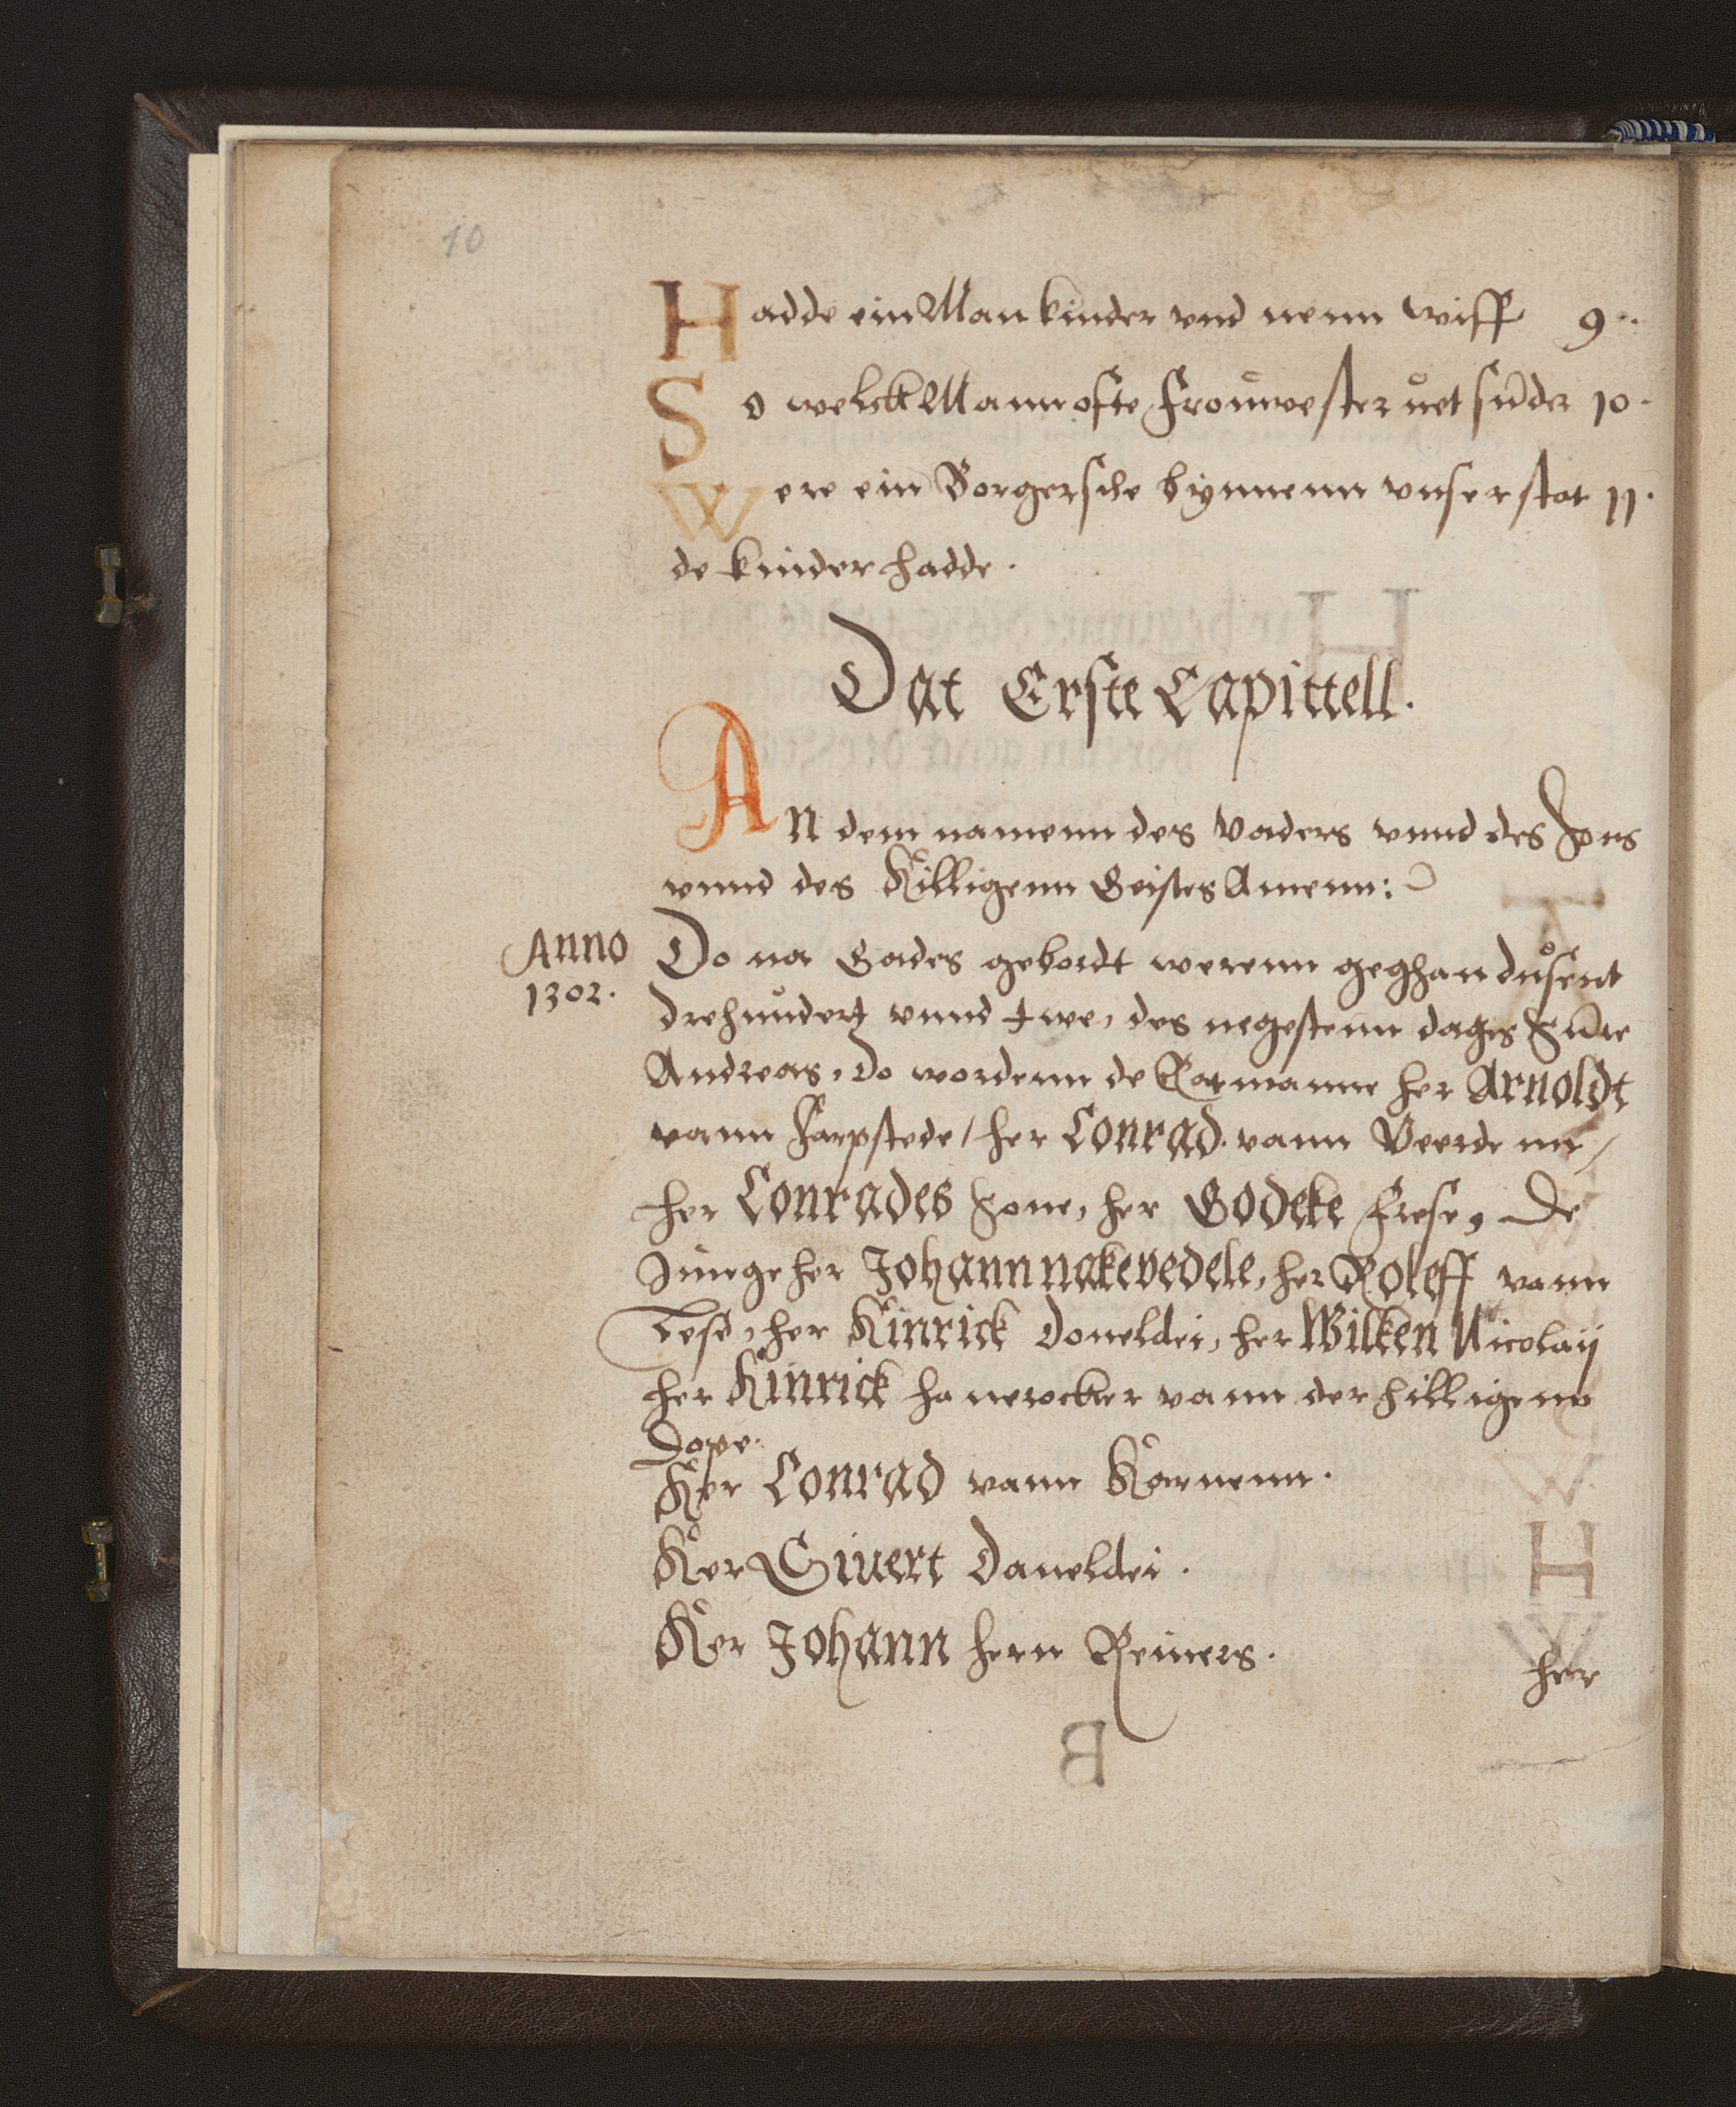 10
Hadde ein Man kinder vnd nenn wiff 9
So welck Mann ofte frouwe steruet sunder 10
Were ein Borgersche bynnenn vnser stat 11
de kinder hadde.
Dat Erste Capittell.
An dem namenn des Vaders vnnd des Sons
vnnd des Hilligenn Geistes Amenn:
Anno
1302.
Do na Gades gebordt werenn geghan dusent
drehundert vnnd twe, des negestenn dages Sunte
Andreas, do wordenn de Ratmanne her Arnoldt
vann Harpstede / her Conrad vann Veerde nn /
her Conrades Sone, her Godeke Frese, De
Junge her Johann nakevedele, her Roleff vann
Lese, her Hinrick Doneldei, her Wilken Nicolaij
her Hinrick hanerocker vann der hilligenn
Dope.
Her Conrad vann Harnenn.
Her Siuert Daneldei.
Her Johann hern Reiners.
her